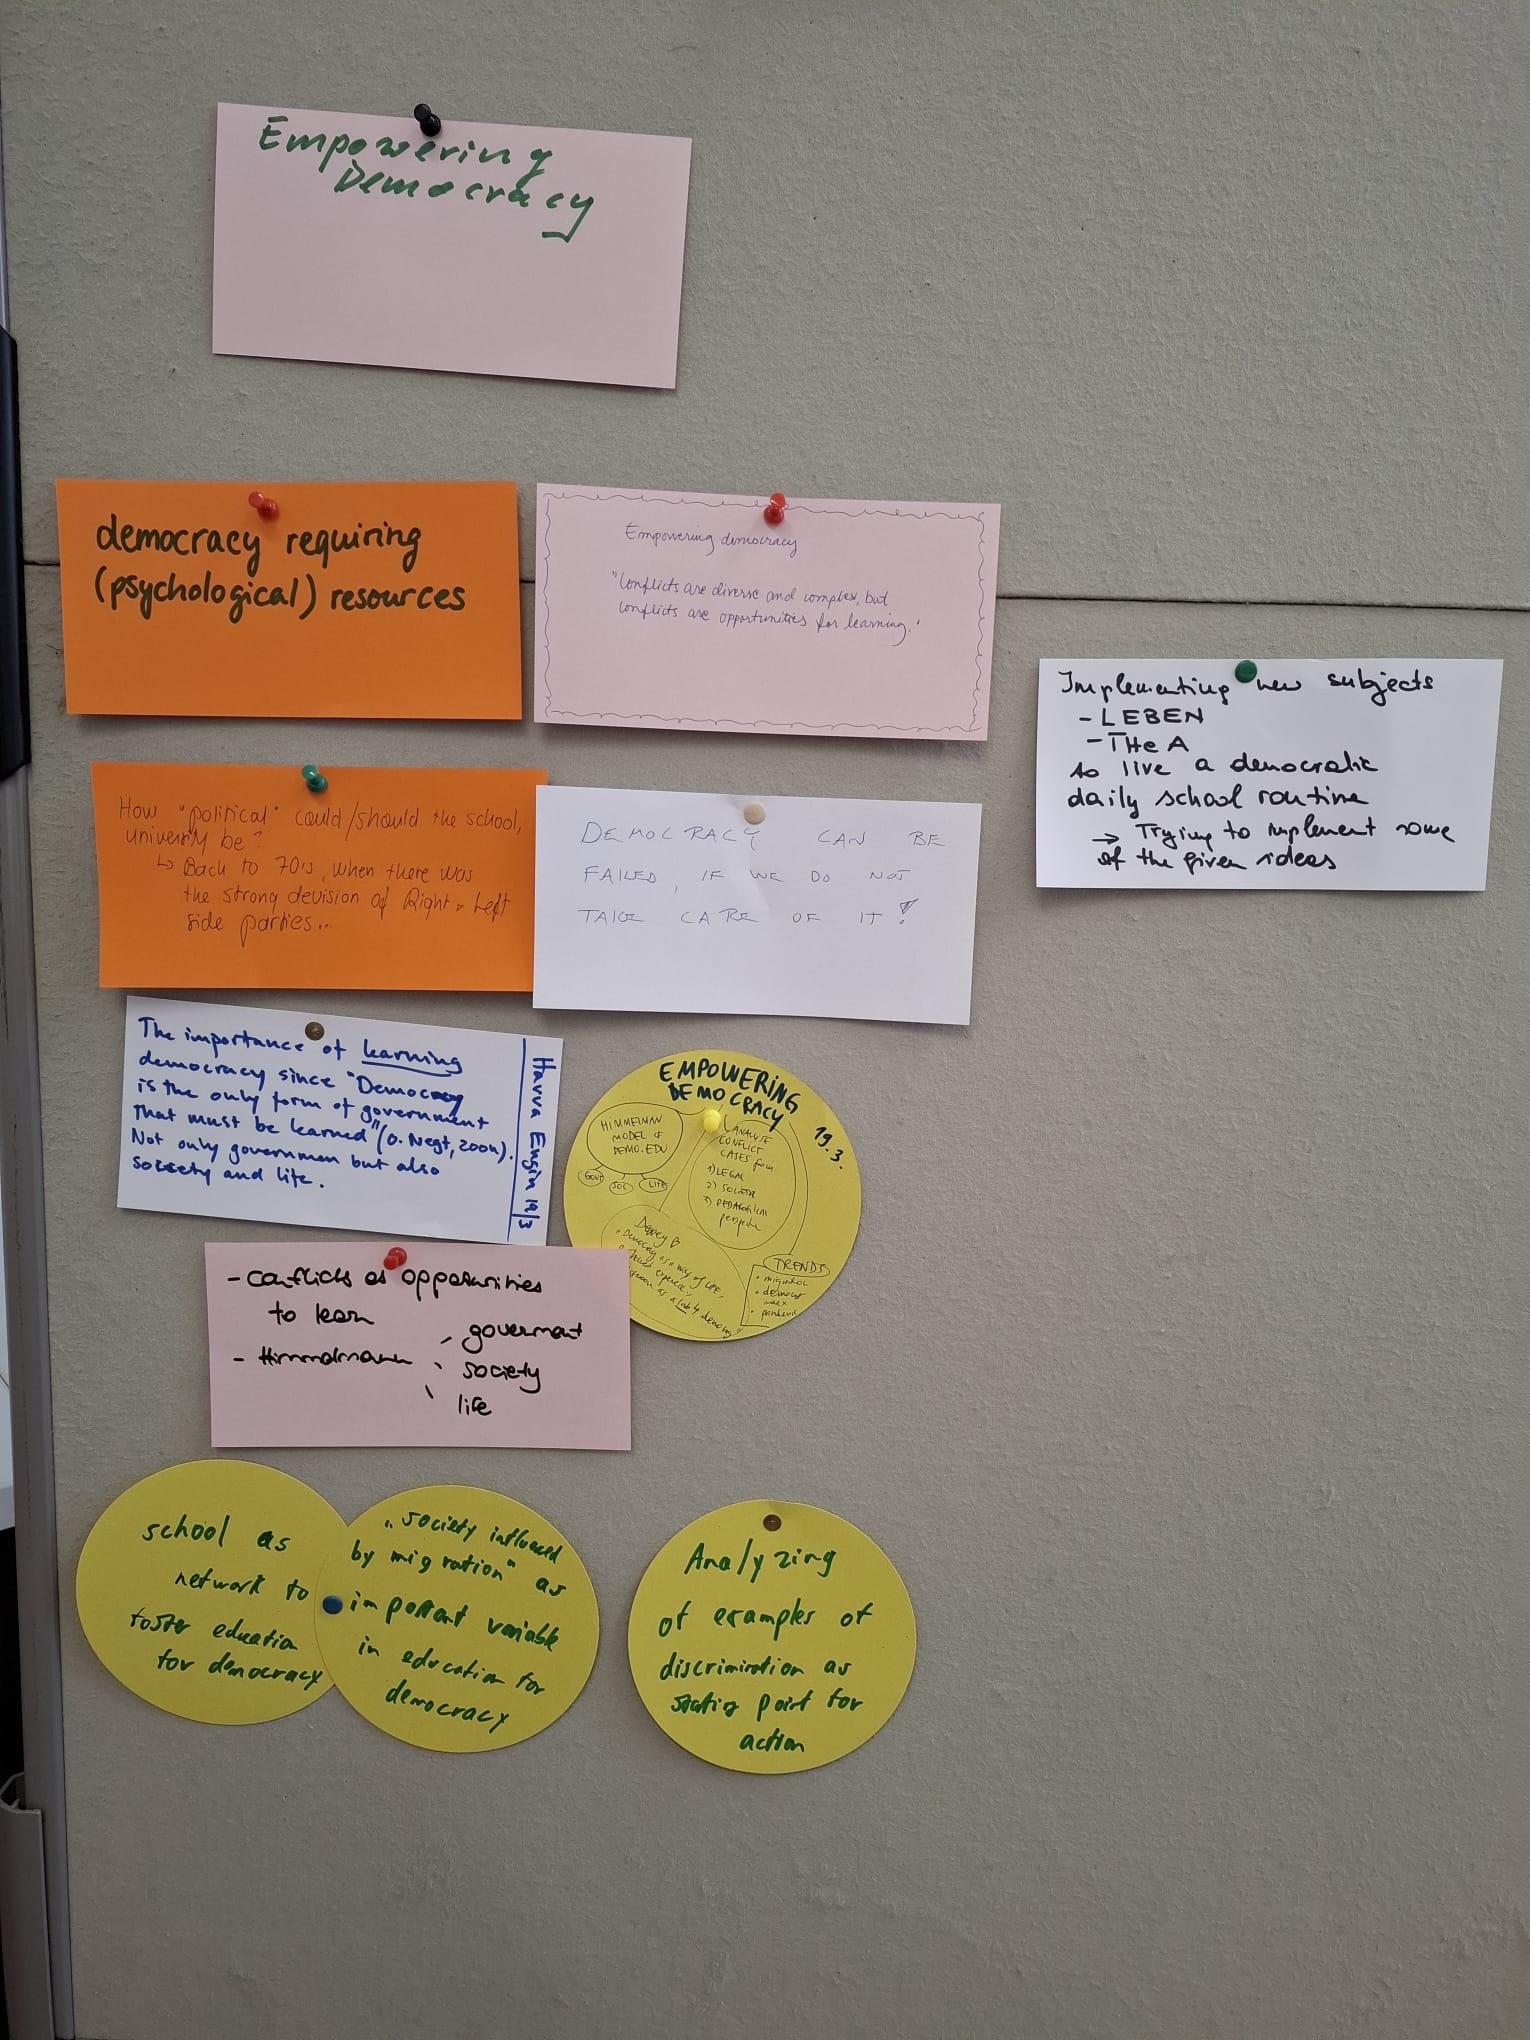 Empowering
Democracy
democracy requiring
(psychological) resources
Empowering democracy
"Conflicts are diverse and complex, but
conflicts are opportunities for learning."
Implementing new subjects
- LEBEN
- THeA
to live a democratic
daily school routine
→ Trying to implement some
of the given ideas
How "political" could/should the school,
university be?
↳ Back to 70's, when there was
the strong devision of Right - Left
side parties...
DEMOCRACY CAN BE
FAILED, IF WE DO NOT
TAKE CARE OF IT!
The importance of learning
democracy since "Democracy
is the only form of government
that must be learned" (O. Negt, 2004).
Not only governmen but also
society and life.
Havva Engin 19/3
EMPOWERING
DEMOCRACY
19.3.
HIMMELMAN
MODEL of
DEMO.EDU
GOVT
SOC
LIFE
ANALYSE
CONFLICT
CASES from
1) LEGAL
2)
3) PEDAGOGICAL
perspective
Dewey
"Democracy as a way of LIFE,
experience"
as a lab 4 democracy"
TRENDS
• migration
• democr
index
• pandemic
- Conflicts as opportunities
to learn
- Himmelmann
- goverment
society
life
school as
network to
foster eduation
for democracy
"society influenced
by migration" as
important variable
in education for
democracy
Analyzing
of examples of
discrimination as
stating point for
action